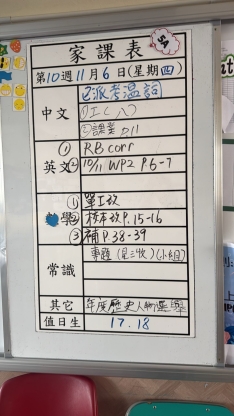 家課表
5A
第10週11月6日(星期四)
中文
已派考温詞
①工(八)
②課業 P.11
英文
① RB corr
② 10/11 WP2 P.6-7
數學
① 單工改
② 校本改P.15-16
③ 補P.38-39
常識
專題(是三收)(小組)
其它
年度歷史人物選舉
值日生
17.18